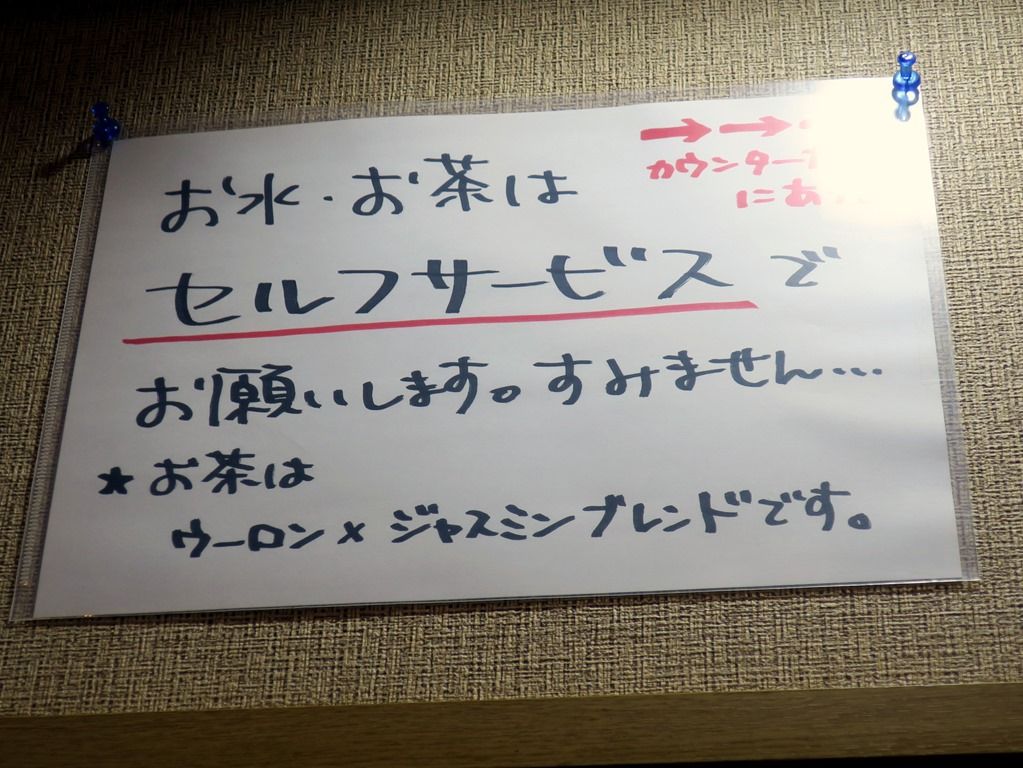 →→
カウンター
にあ
お水・お茶は
セルフサービスで
お願いします。すみません…
★お茶は
ウーロン×ジャスミンブレンドです。